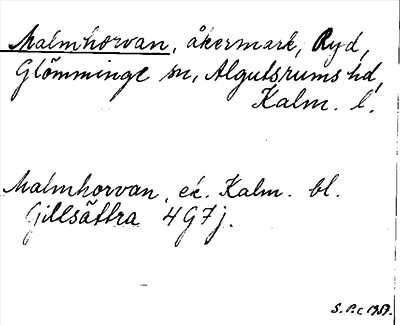 Malmhorvan, åkermark, Ryd,
Glömminge sn, Algutsrums hd,
Kalm. l.
Malmhorvan, ek. Kalm. bl.
Gillsättra 4G7j.
S. P.c 1959.